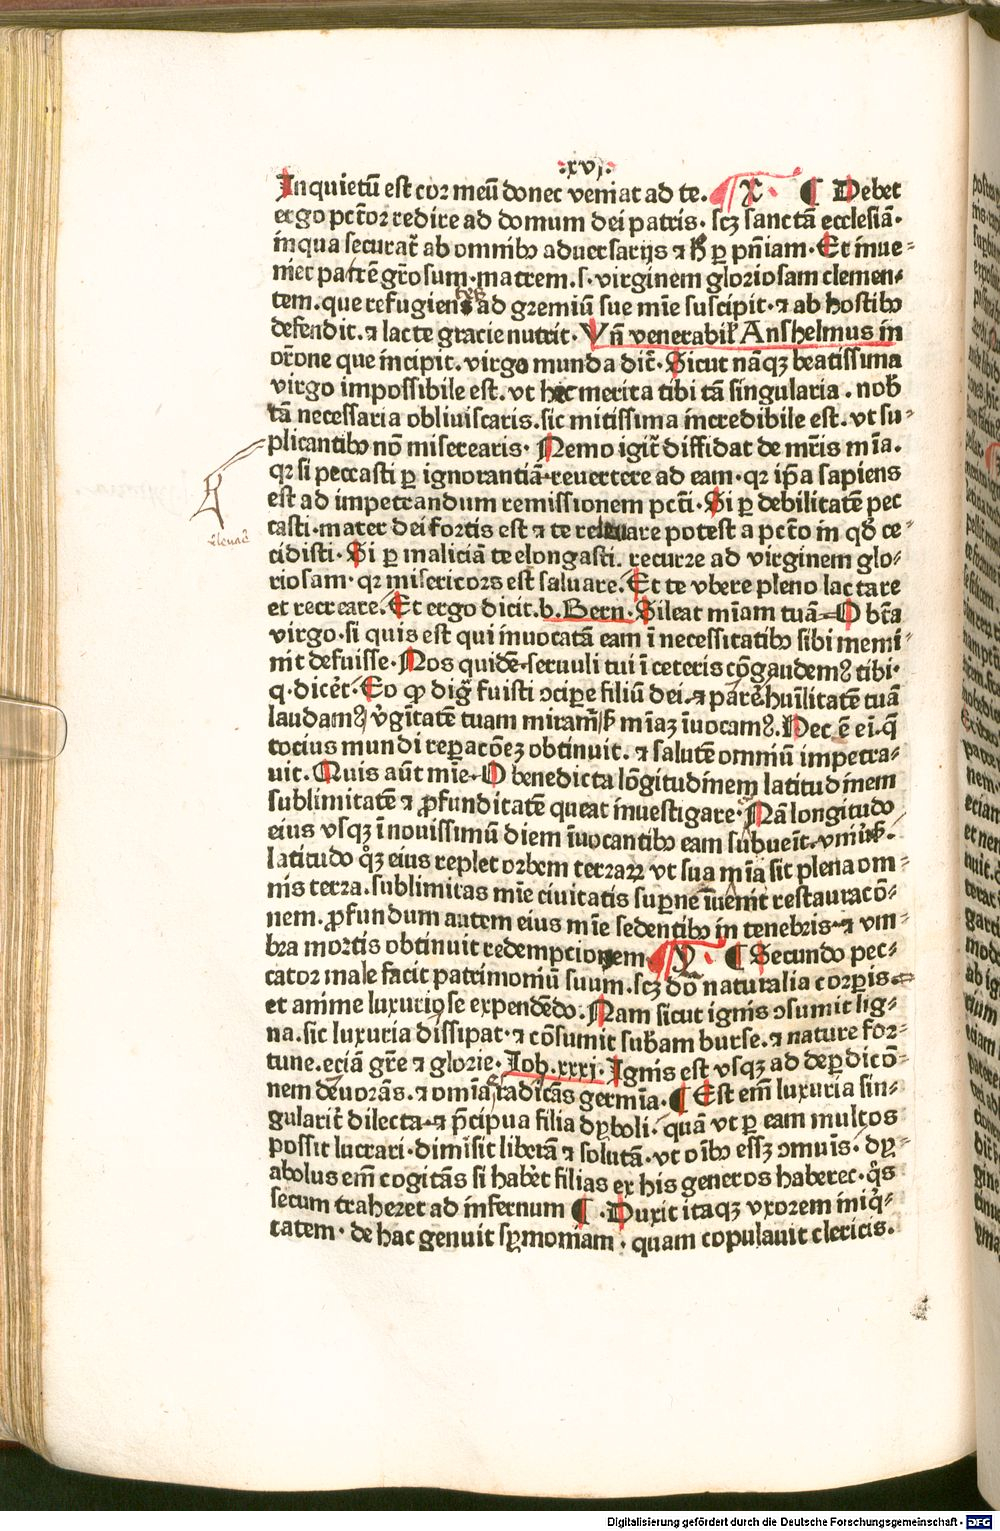 .xvj.
Inquietū est cor meū donec veniat ad te. X ¶ Debet
ergo pctōr redire ad domum dei patris. scꝫ sanctā ecclesiā.
in qua securat᷑ ab omnibꝰ aduersarijs ⁊ ꝑ pn̄iam. Et inue⸗
niet patrē gr̄osum. matrem .s. virginem gloriosam clemen⸗
tem. que refugiens ad gremiū sue mīe suscipit. ⁊ ab hostibꝰ
defendit. ⁊ lacte gracie nutrit. Vn̄ venerabil̓ Anshelmus in
or̄one que incipit. virgo munda dic̄. Sicut nāqꝫ beatissima
virgo impossibile est. vt hec merita tibi tā singularia. nob̄
tā necessaria obliuiscaris. sic mitissima incredibile est. vt su⸗
plicantibꝰ nō miserearis. Nemo igit᷑ diffidat de mr̄is mīa.
qꝛ si peccasti ꝑ ignorantiā reuertere ad eam. qꝛ ip̄a sapiens
est ad impetrandum remissionem pcti. Si ꝑ debilitatē pec
casti. mater dei fortis est ⁊ te releuare potest a pctō in qd̄ ce⸗
releuare
cidisti. Si ꝑ maliciā te elongasti. recurre ad virginem glo⸗
riosam. qꝛ misericors est saluare. Et te vbere pleno lactare
et recreare. Et ergo dicit .b. Bern. Sileat mīam tuā O btā
virgo. si quis est qui inuocatā eam ī necessitatibꝰ sibi memi⸗
nit defuisse. Nos quidē seruuli tui ī ceteris cōgaudemꝰ tibi.
q. dicer̄. Eo ꝙ dig̊ fuisti ↄcipere filiū dei. ⁊ huīlitatē tuā
laudamꝰ v̓gītatē tuam miramur mīaꝫ īuocamꝰ. Hec ē ei. q̄
tocius mundi reꝑacōeꝫ obtinuit. ⁊ salutē omniū impetra⸗
uit. Quis aūt mīe O benedicta lōgitudinem latitudinem
sublimitatē ⁊ ꝓfunditatē queat inuestigare. Nā longitudo
eius vsqꝫ ī nouissimū diem īuocantibꝰ eam subueīt.
latitudo qꝫ eius replet orbem terraꝝ vt sua mīa sit plena om⸗
nis terra. sublimitas mīe ciuitatis suꝑne īuenit restauracō⸗
nem. ꝓfundum autem eius mīe sedentibꝰ in tenebris ⁊ vm⸗
bra mortis obtinuit redempcionem. Y. ¶ Secundo pec⸗
cator male facit patrimoniū suum. scꝫ dō naturalia corꝑis
et anime luxuriose expendēdo. Nam sicut ignis ↄsumit lig⸗
na. sic luxuria dissipat. ⁊ cōsumit subam burse. ⁊ nature for⸗
tune. eciā gr̄e ⁊ glorie. Iob. xxxi. Ignis est vsqꝫ ad deꝑdicō⸗
nem deuorās. ⁊ omīa radicās germīa. ¶ Est em̄ luxuria sin⸗
gularit᷑ dilecta. ⁊ p̄cipua filia dyboli. quā vt ꝑ eam multos
possit lucrari. dimisit liberā ⁊ solutā. vt oībꝰ essꝫ ↄmuīs. dy⸗
abolus em̄ cogitās si haber̄ filias ex his generos haberet. qͦs
secum traheret ad infernum ¶ .Duxit itaqꝫ vxorem iniqͥ⸗
tatem. de hac genuit symoniam. quam copulauit clericis.
Digitalisierung gefördert durch die Deutsche Forschungsgemeinschaft - DFG